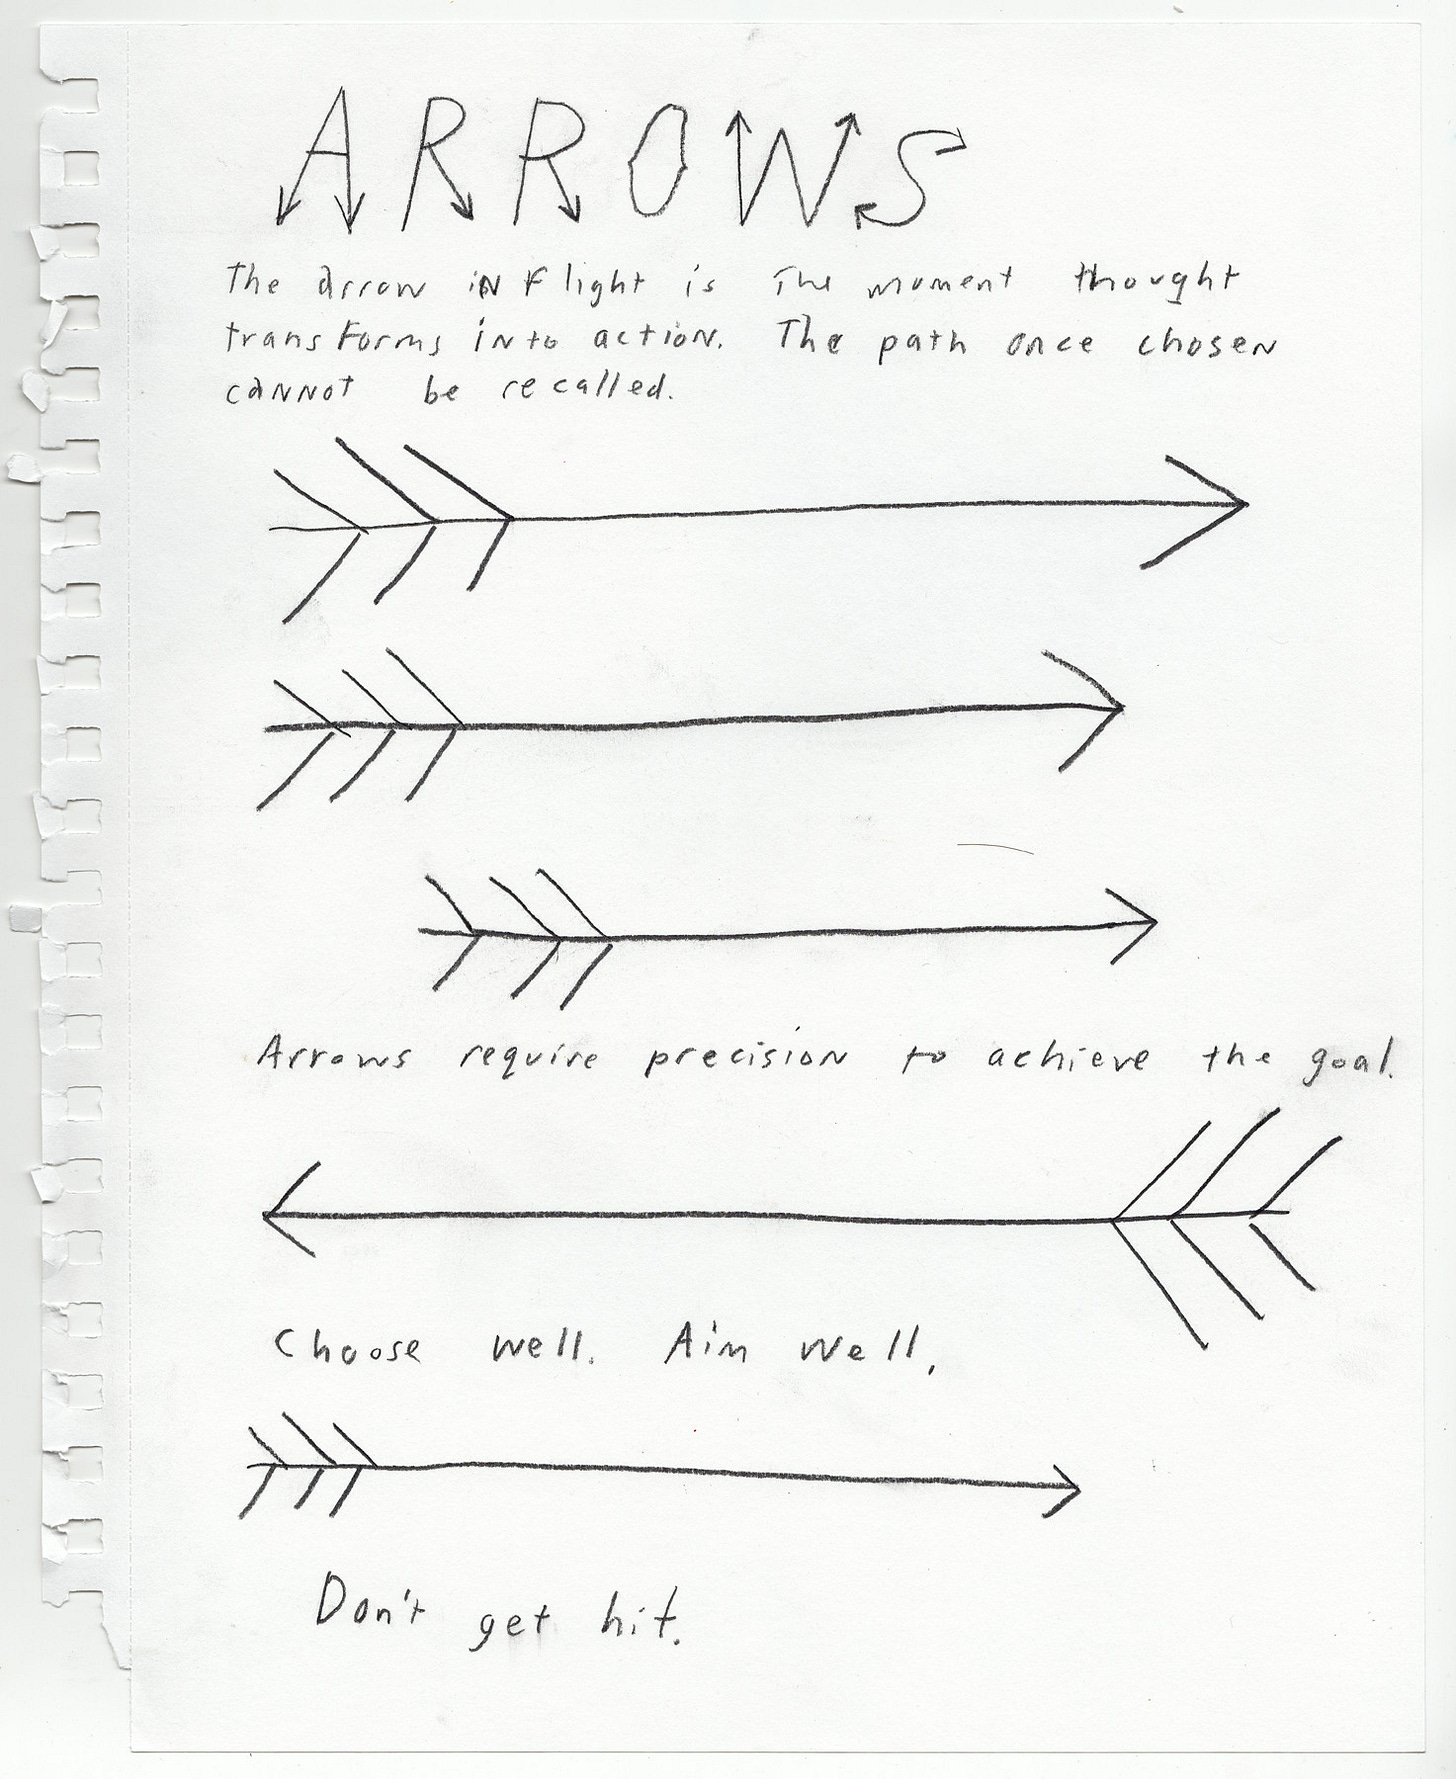 ARROWS
The arrow in flight is the moment thought
transforms into action. The path once chosen
cannot be recalled.
Arrows require precision to achieve the goal.
Choose well. Aim well.
Don't get hit.